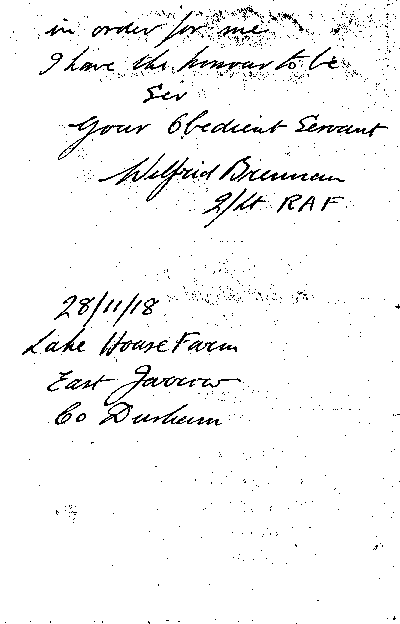 in order for me
I have the honour to be
Sir
Your Obedient Servant
Wilfrid Brennan
2/Lt RAF
28/11/18
Lake House Farm
East Jarrow
Co Durham